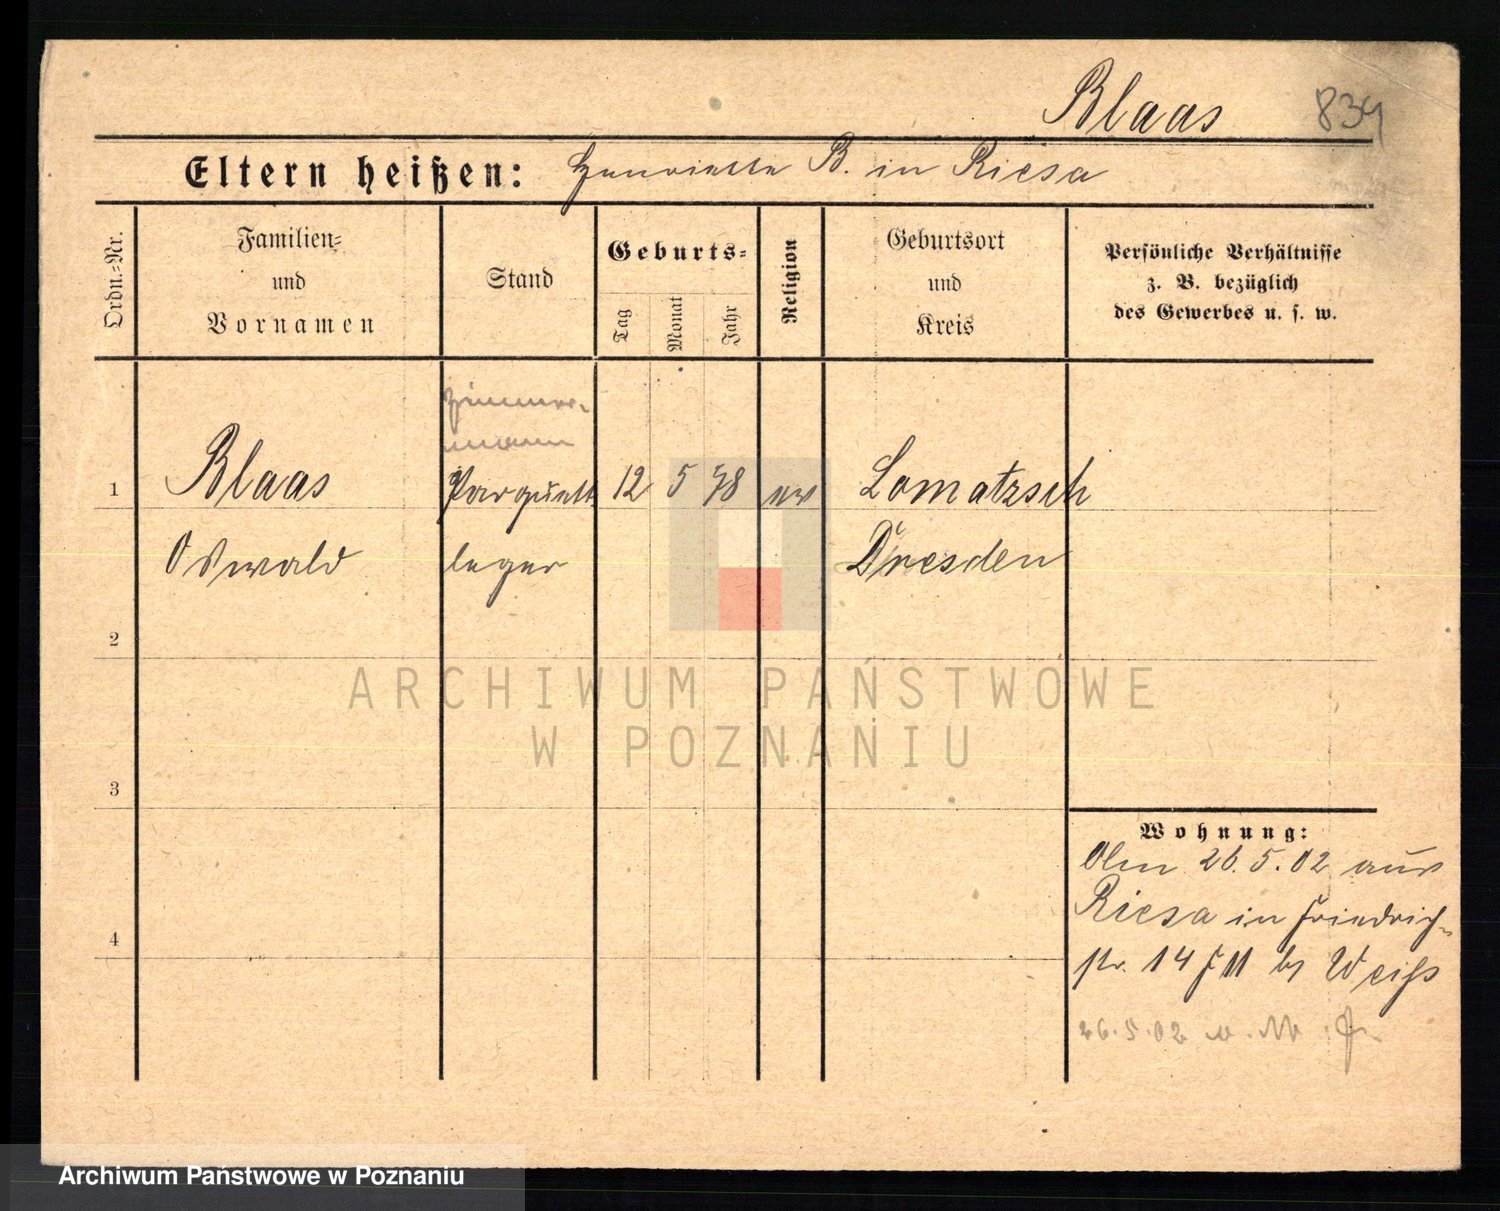 Blaas 834
Eltern heißen: Henriette B. in Riesa
Ordn.-Nr.
Familien-
und
Vornamen
Stand
Geburts-
Tag
Monat
Jahr
Religion
Geburtsort
und
Kreis
Persönliche Verhältnisse
z. B. bezüglich
des Gewerbes u. s. w.
Zimmer-
mann
1 Blaas Parquett 12 5 78 ev Lomatzsch
Oswald leger Dresden
2
ARCHIWUM PAŃSTWOWE
W POZNANIU
3
Wohnung:
Am 26.5.02 aus
Riesa in Friedrich-
str. 14 II by Weiß
4
26.5.02
Archiwum Państwowe w Poznaniu